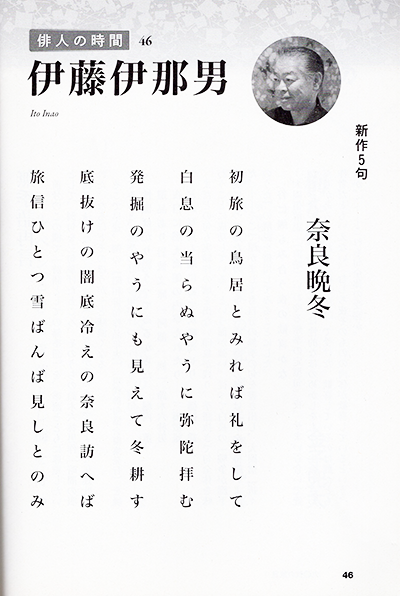 俳人の時間 46
伊藤伊那男
Ito Inao
新作5句
奈良晩冬
初旅の鳥居とみれば礼をして
白息の当らぬやうに弥陀拝む
発掘のやうにも見えて冬耕す
底抜けの闇底冷えの奈良訪へば
旅信ひとつ雪ばんば見しとのみ
46